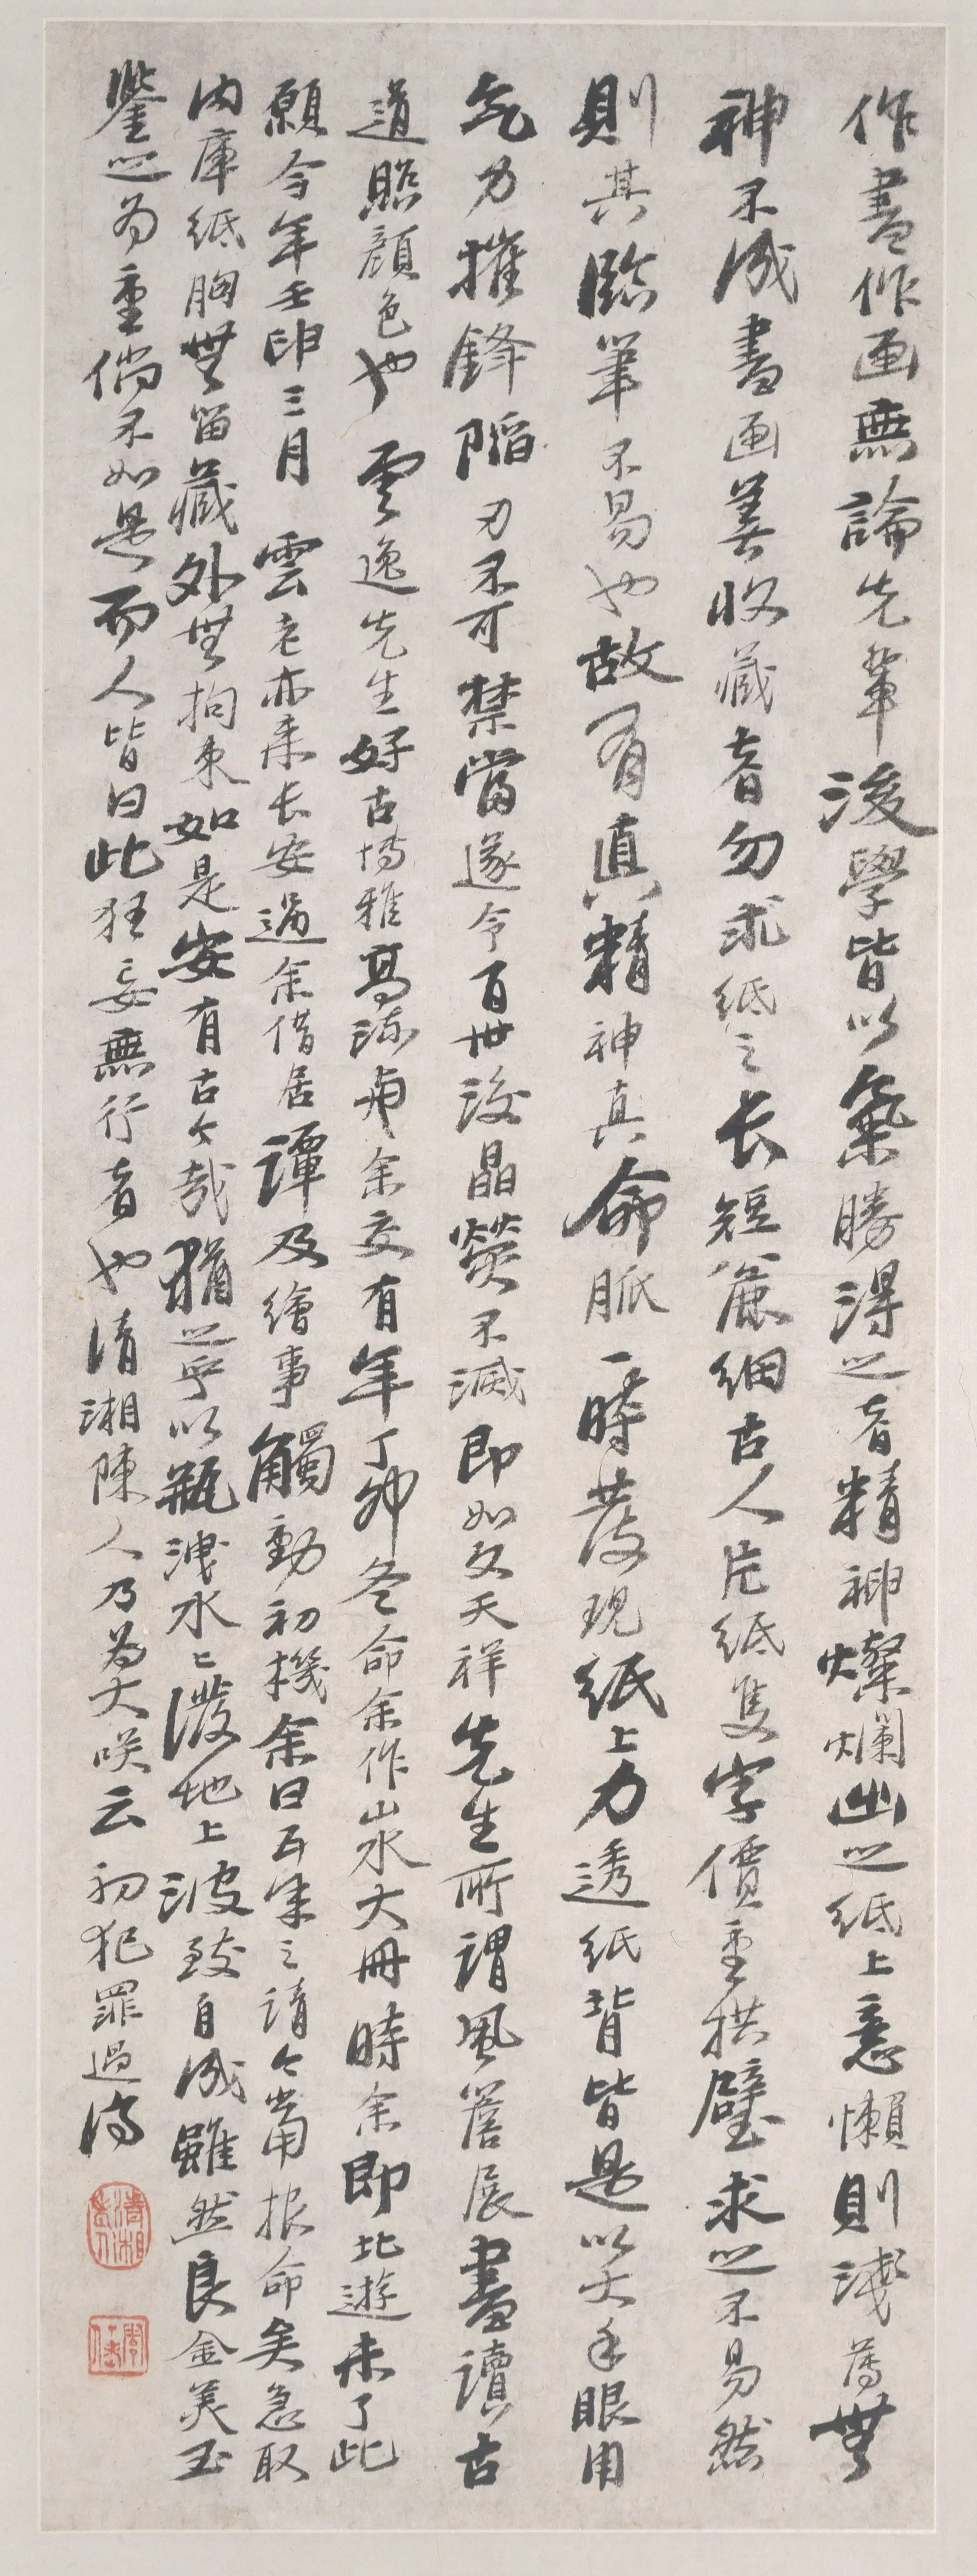 作書作画無論先輩後學皆以氣勝得之者精神燦爛出之紙上意懶則淺薄無
神不成書画善收藏者勿求紙之长短麁細古人片紙隻字價重拱璧求之不易然
則其臨筆不易也故有真精神真命脈一時發現紙上力透紙背皆是以大手眼用
氣力摧鋒陷刃不可禁當遂令百世後晶熒不滅即如文天祥先生所謂風簷展書讀古
道照顔色也雲逸先生好古博雅髙流與余交有年丁卯冬命余作山水大冊時余即北遊未了此
願今年壬申三月雲老亦来长安過余借居譚及繪事觸動初機余曰五年之請今當报命矣急取
内庫紙胸無留藏外無拘束如是安有古今哉猶之乎以瓶洩水水潑地上波致自成雖然良金美玉
鑒之為重倘不如是而人皆曰此狂妄無行者也清湘陳人乃為大咲云初犯罪過濟
清湘老人